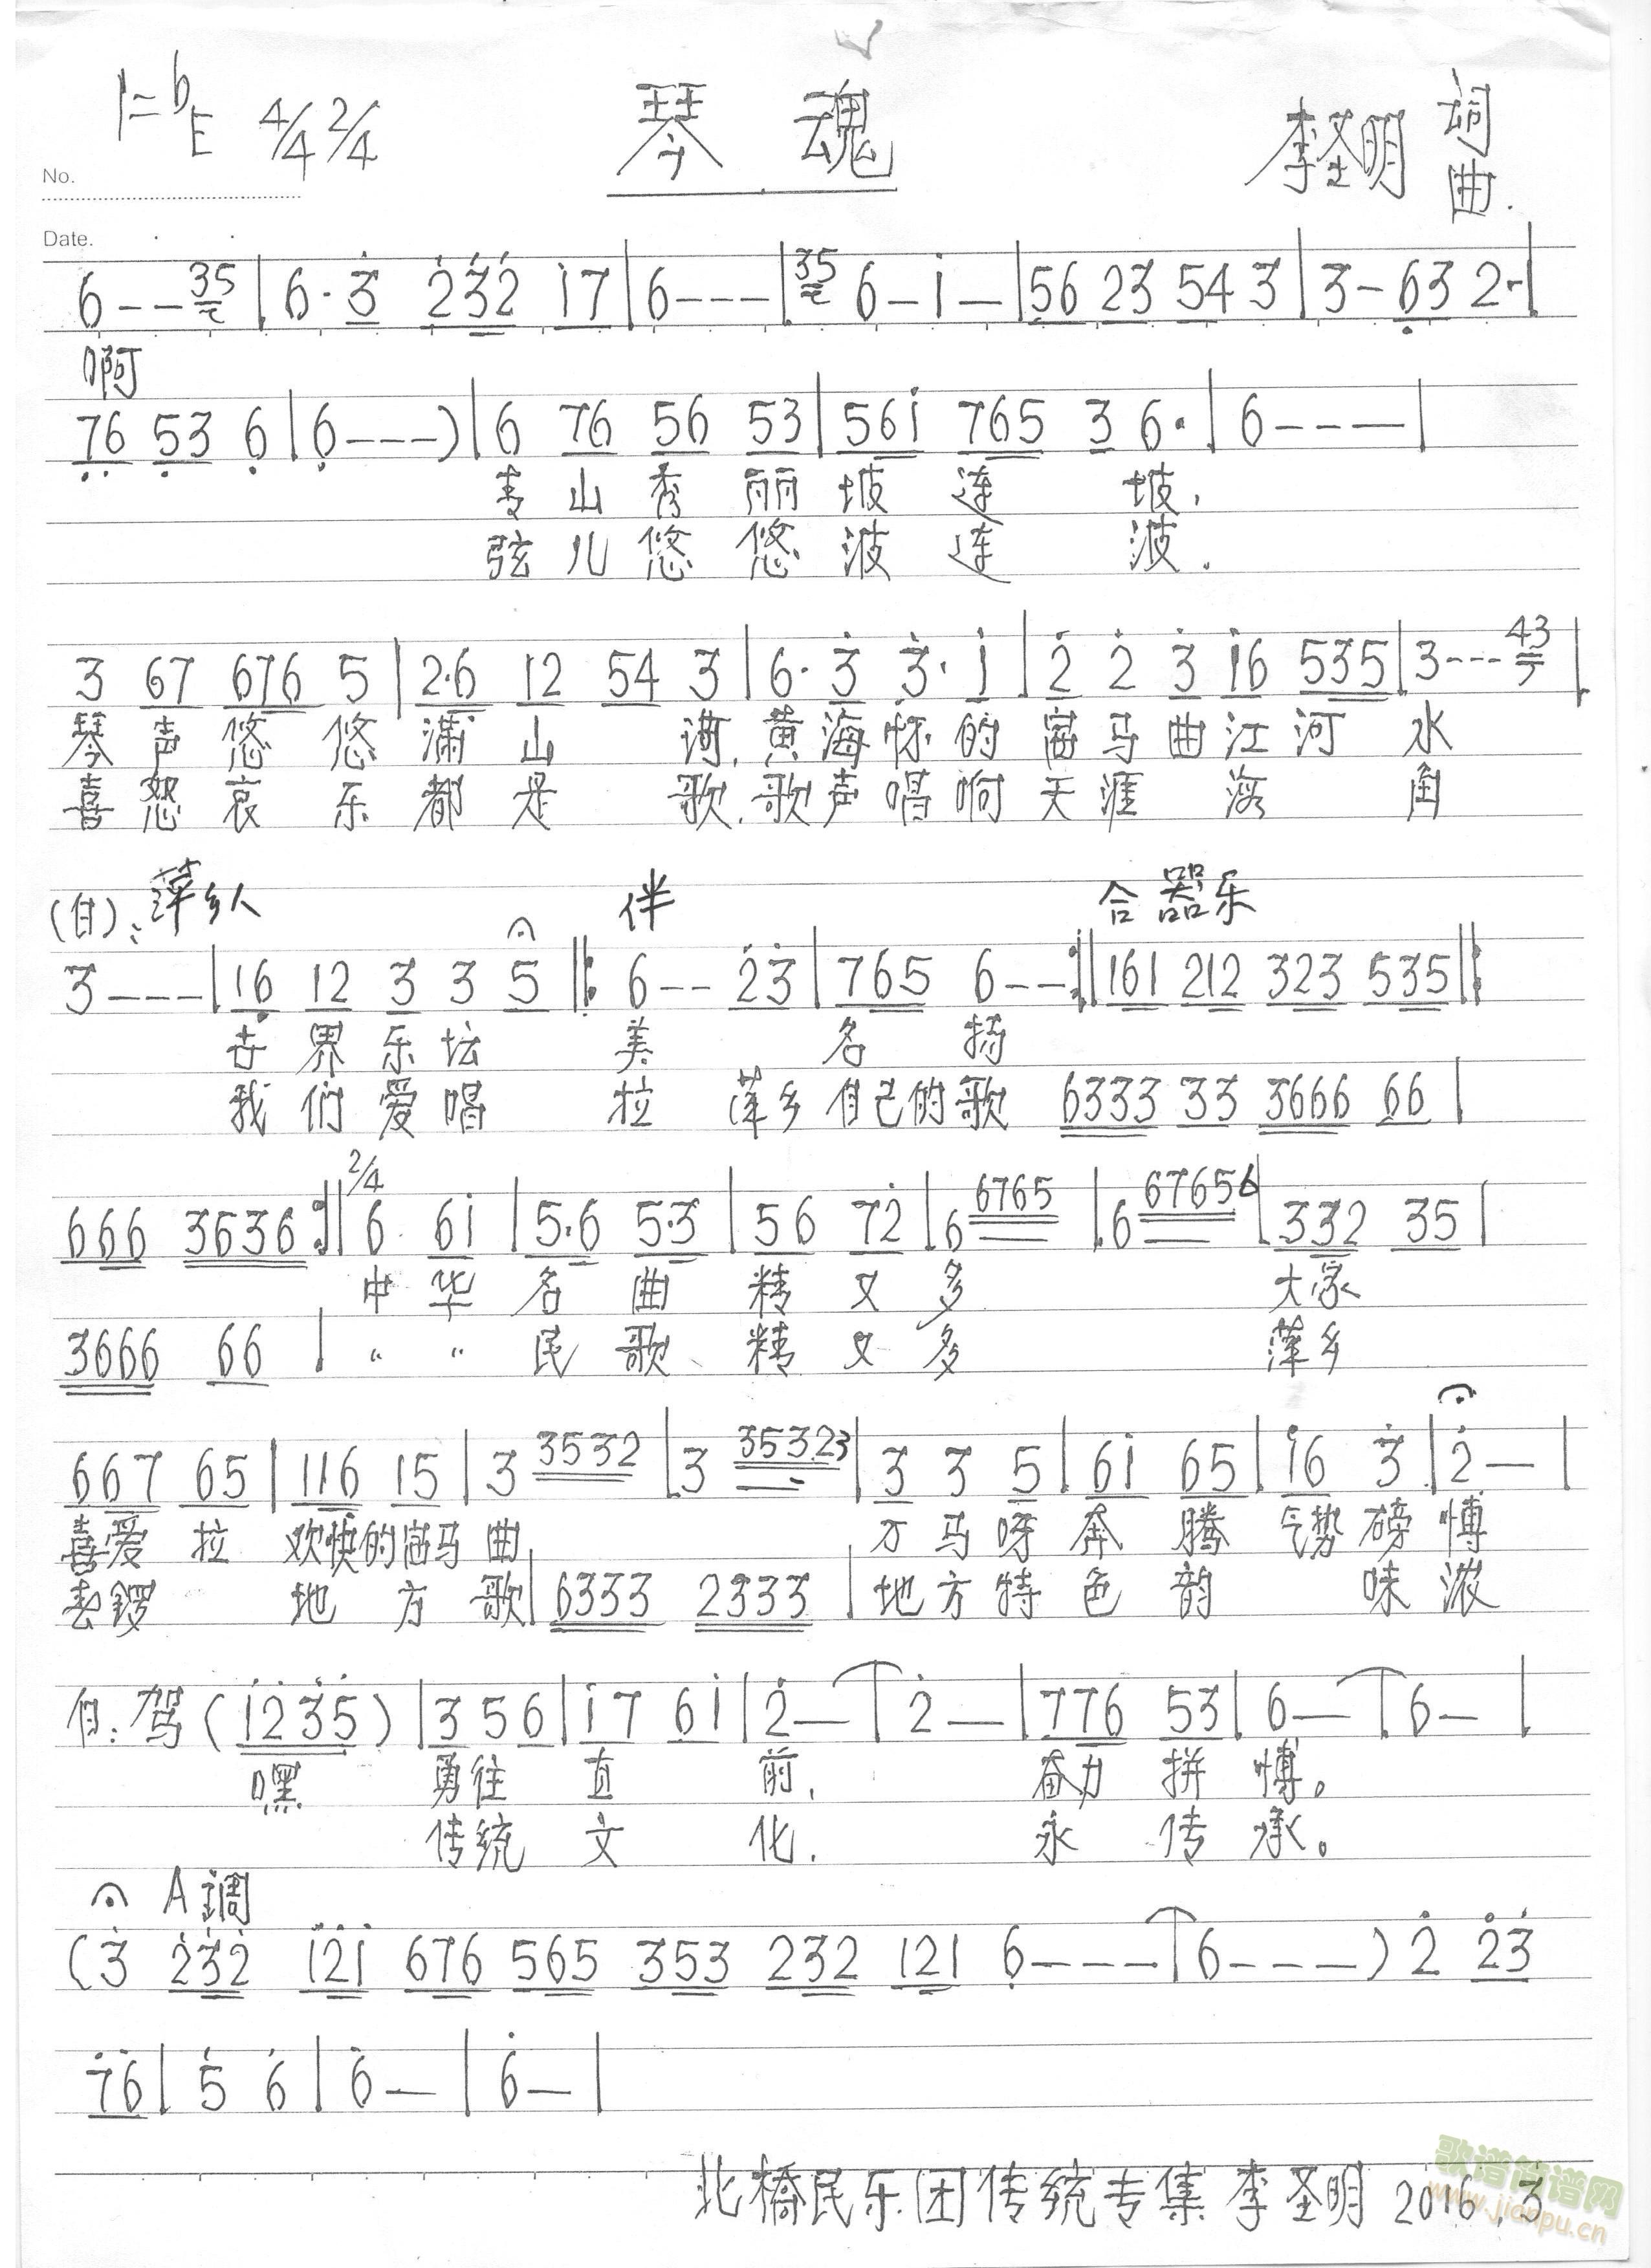 1=bE 4/4 2/4 琴 魂 李圣明 词
曲.
No.
Date.
6--35|6·3 232 17|6---|35 6-1-|56 23 54 3|3-63 2-|
啊
76 53 6|6---)|6 76 56 53|561 765 3 6·|6---|
青 山 秀 丽 坡 连 坡.
弦 儿 悠 悠 波 连 波.
3 67 676 5|2·6 12 54 3|6·3 3·1|2 2 3 16 535|3---43|
琴 声 悠 悠 满 山 河. 黄 海 怀 的 马 曲 江 河 水
喜 怒 哀 乐 都 是 歌. 歌 声 唱 响 天 涯 海 角
(白): 萍乡人 伴 合 器 乐
3---|16 12 3 3 5‖:6-- 23|765 6--:‖161 212 323 535‖:
世 界 乐 坛 美 名 扬
我 们 爱 唱 拉 萍乡 自己的歌 6333 33 3666 66|
666 3636:‖2/4 6 61|5·6 5·3|56 72|6 6765|6 67656|332 35|
中 华 名 曲 精 又 多 大家
3666 66| " " 民 歌 精 又 多 萍乡
667 65|116 15|3 3532|3 35323|3 3 5|61 65|16 3|2-|
喜爱 拉 欢快的 马 曲 万 马 呀 奔 腾 气势 磅 愽
锣 地 方 歌|6333 2333|地 方 特 色 韵 味 浓
白: 驾 (1235)|3 5 6|1 7 61|2-|2-|776 53|6-|6-|
嘿 勇往 直 前. 奋力 拼 愽。
传统 文 化. 永 传 承。
A調
(3 232 121 676 565 353 232 121 6---|6---) 2 23
76|5 6|6-|6-|
北橋民乐团传统专集 李圣明 2016.3
歌谱简谱网
www.jianpu.cn